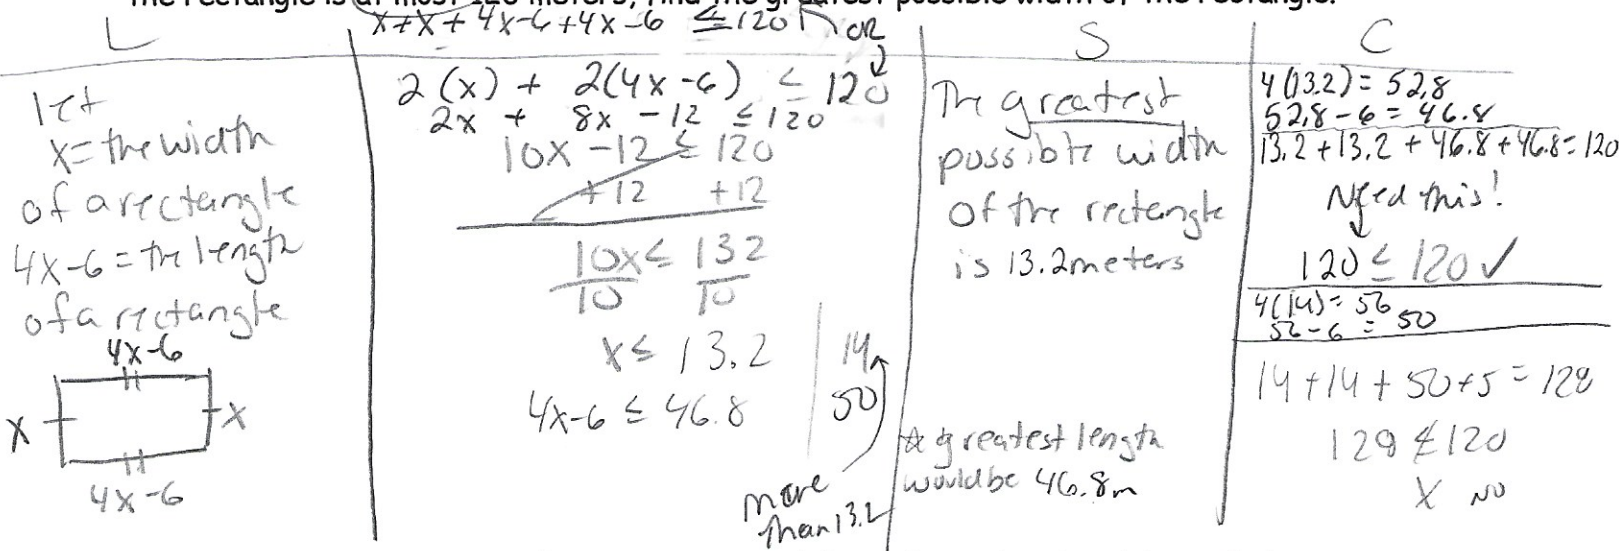 The rectangle is at most 120 meters, find the greatest possible width of the rectangle.
x+x+4x-6+4x-6 ≤120 OR
L
let
x=the width
of a rectangle
4x-6=the length
of a rectangle
4x-6
x
x
4x-6
2(x) + 2(4x-6) ≤ 120
2x + 8x - 12 ≤ 120
10x -12 ≤ 120
+12 +12
10x ≤ 132
10 10
x ≤ 13.2
4x-6 ≤ 46.8
14
50
more
than 13.2
S
The greatest
possible width
of the rectangle
is 13.2meters
☆ greatest length
would be 46.8m
C
4(13.2)= 52.8
52.8-6= 46.8
13.2+13.2+46.8+46.8=120
Need this!
120 ≤ 120 ✓
4(14)= 56
56-6 = 50
14+14+50+5=128
128 ≰ 120
X NO